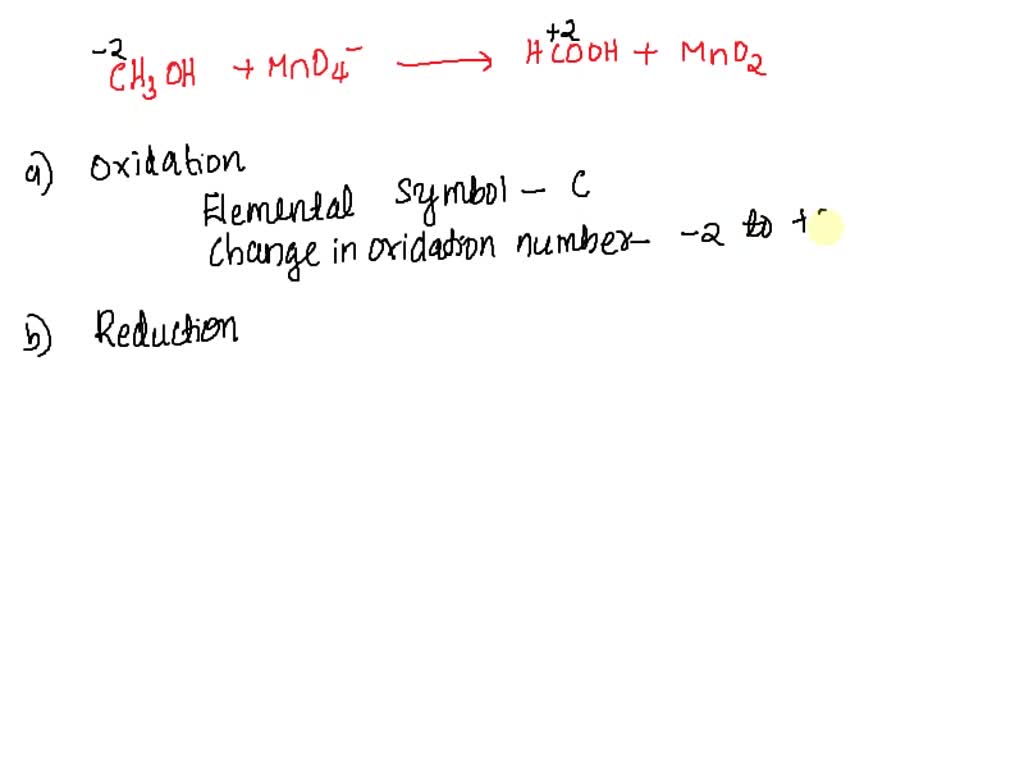 -2 +2
CH3OH + MnO4⁻ ⟶ HCOOH + MnO2
a) Oxidation
Elemental symbol - C
Change in oxidation number - -2 to
b) Reduction